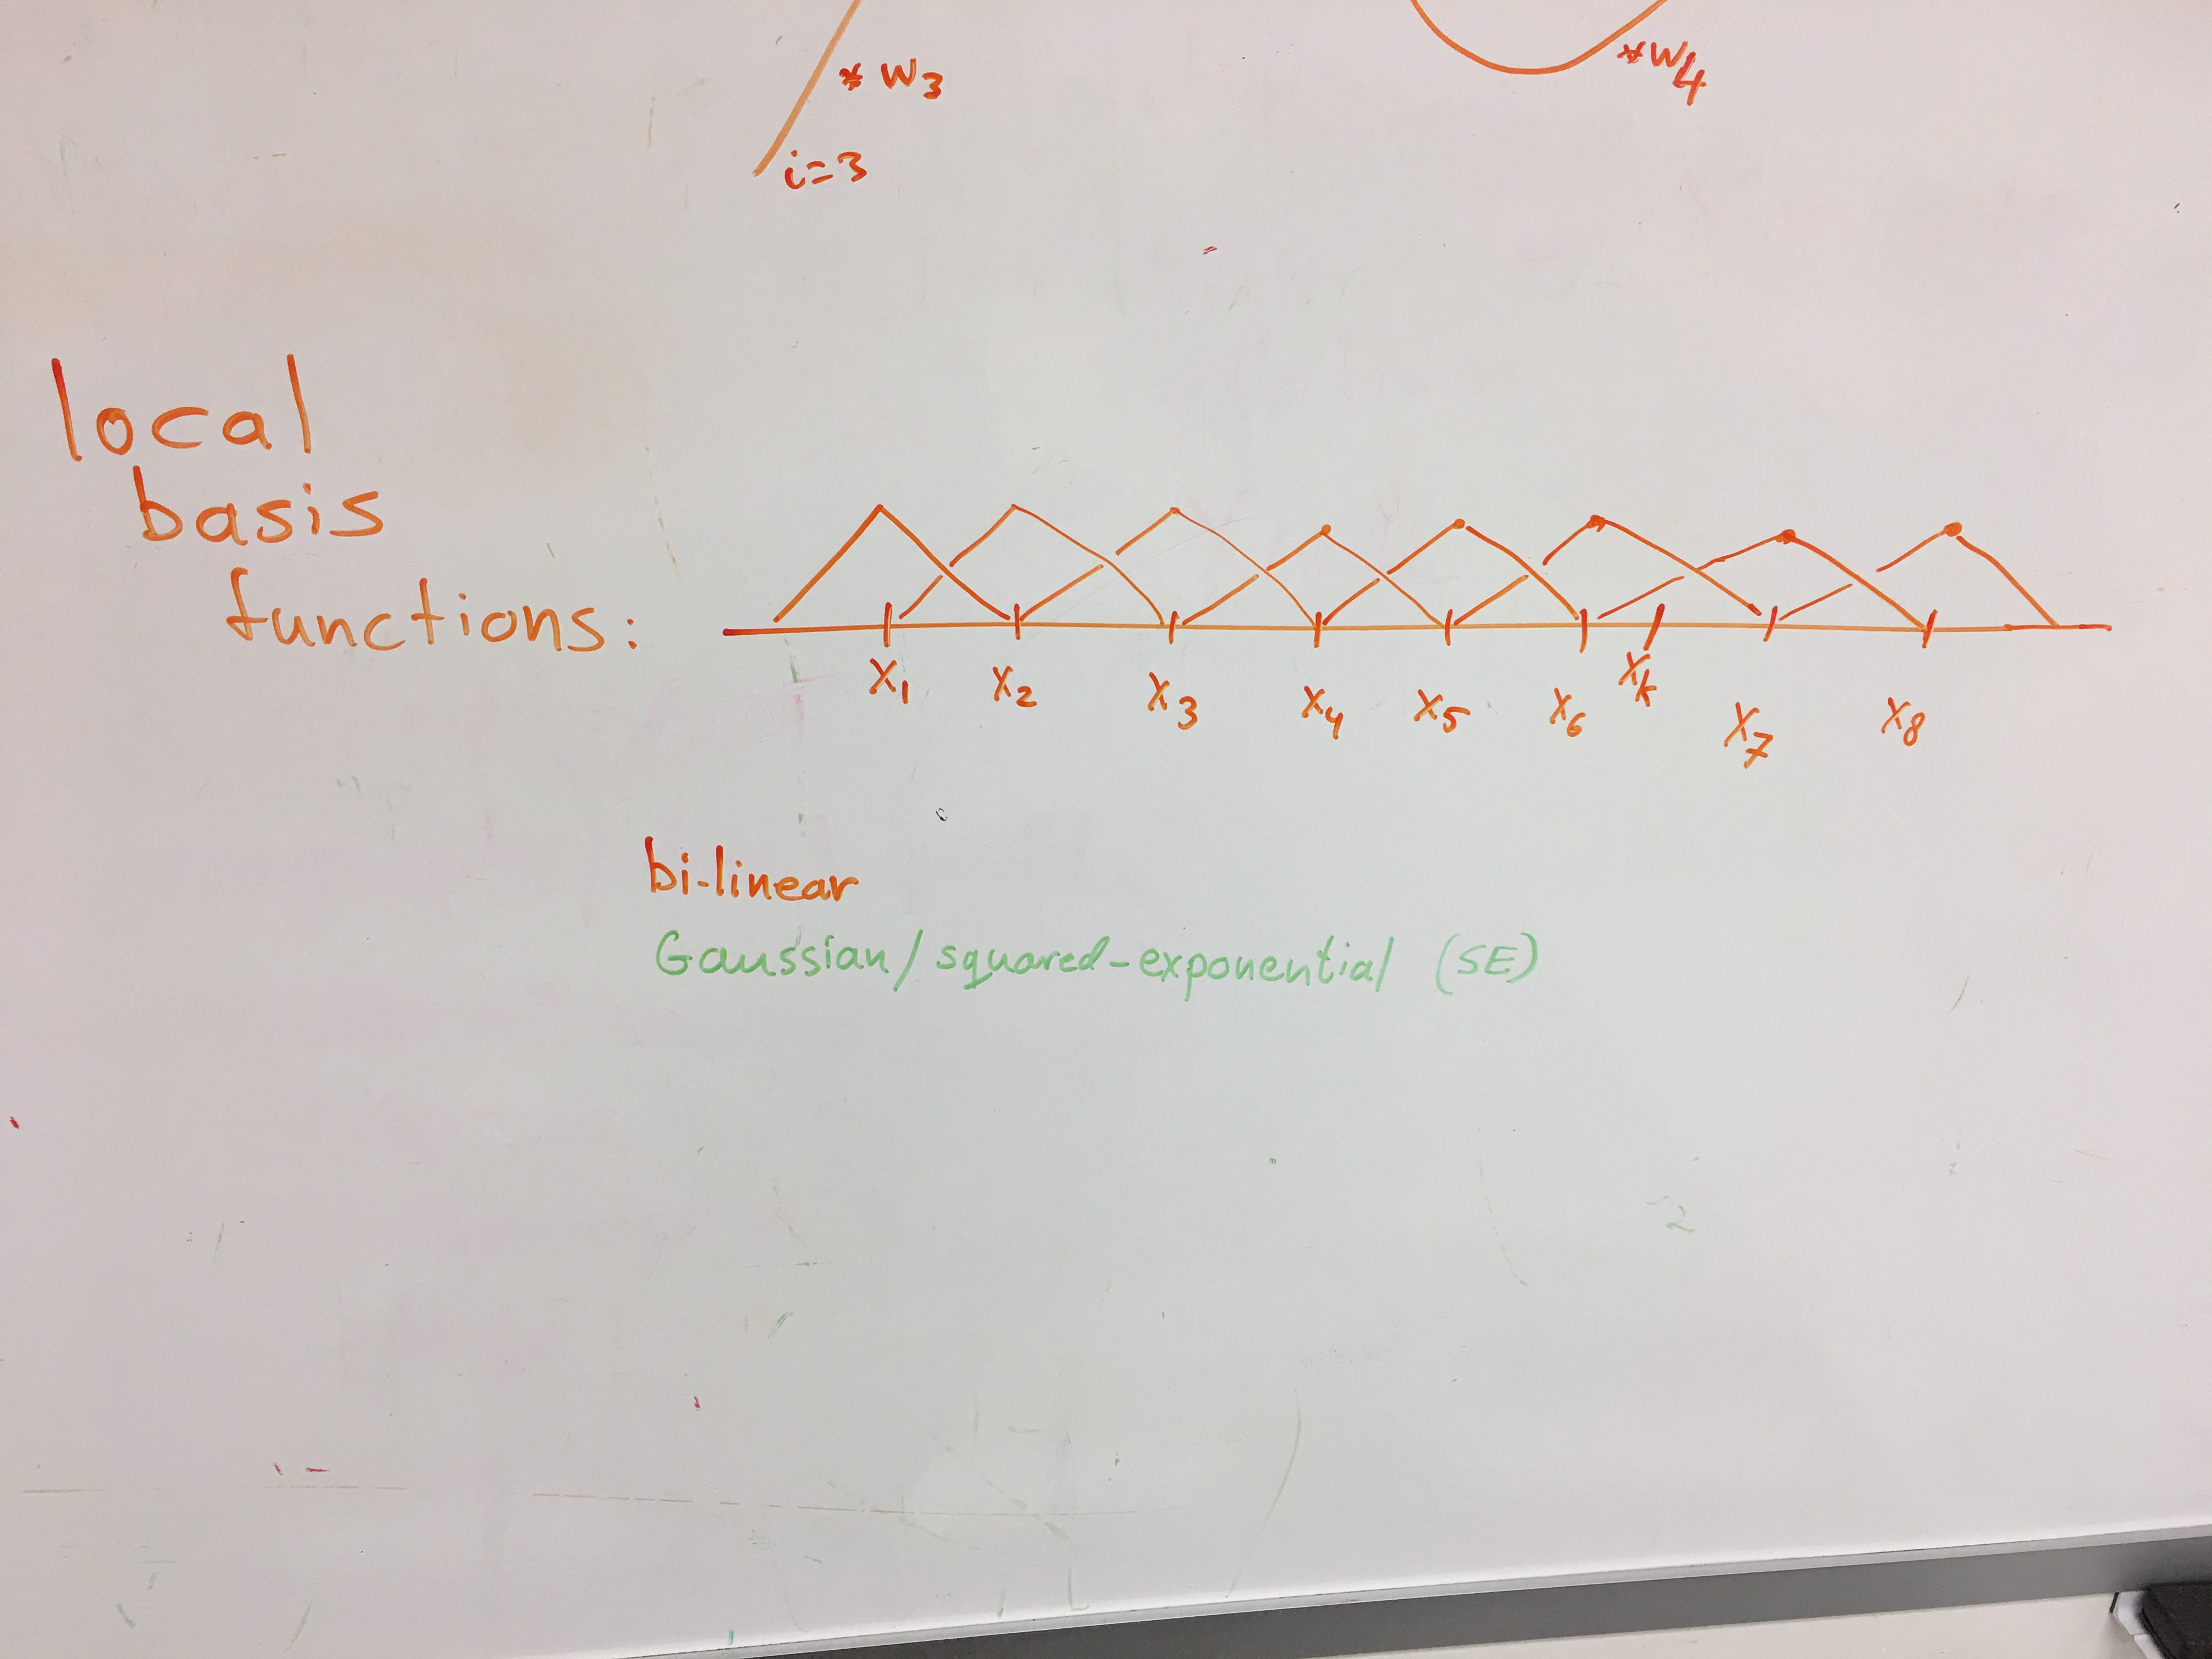 * w3
* w4
i=3
local
basis
functions:
x1 x2 x3 x4 x5 x6 xk x7 x8
bi-linear
Gaussian/squared-exponential (SE)
2